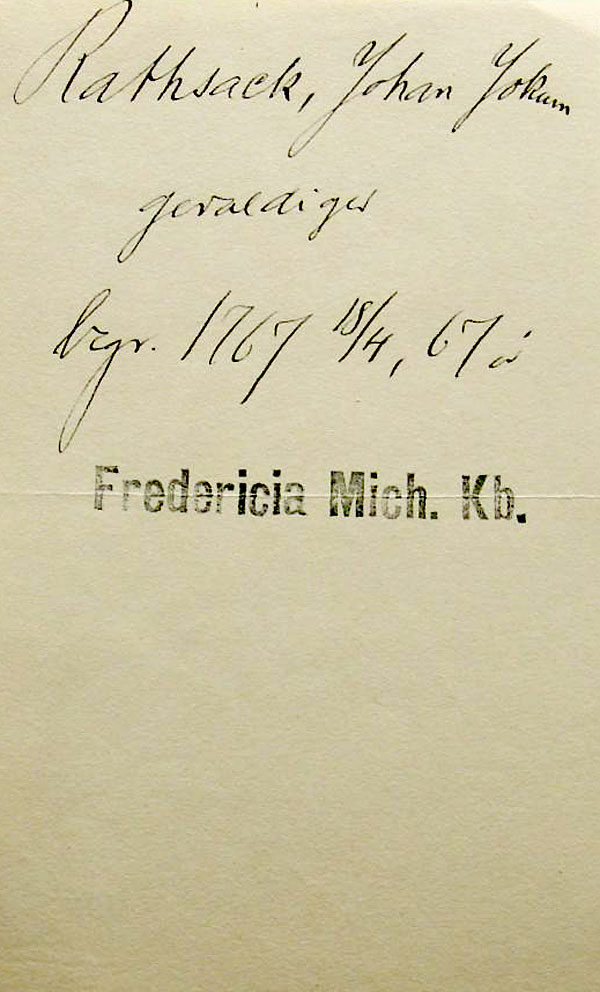 Rathsack, Johan Jokum
gevaldiger
bgr. 1767 18/4, 67 år
Fredericia Mich. Kb.